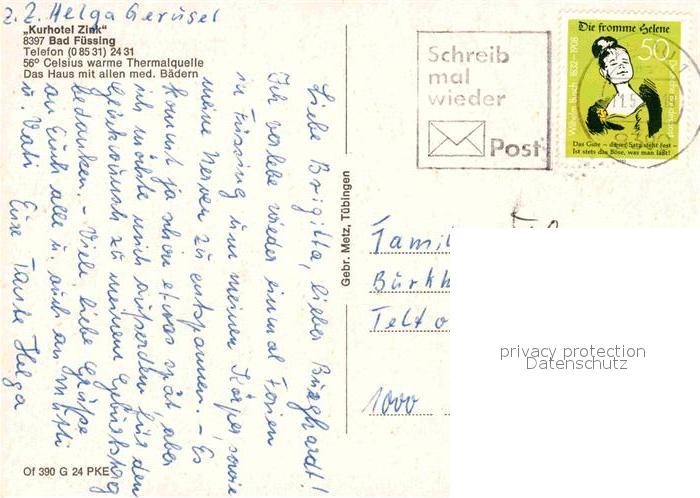 z. Z. Helga Gerusel
„Kurhotel Zink"
8397 Bad Füssing
Telefon (0 85 31) 24 31
56° Celsius warme Thermalquelle
Das Haus mit allen med. Bädern
Liebe Brigitta, lieber Burghardt!
Ich verlebe wieder einmal Ferien
in Füssing um meinen Körper, sowie
meine Nerven zu entspannen. – Es
kommt ja schon etwas spät, aber
ich möchte mich außerdem für den
Glückwunsch zu meinem Geburtstag
bedanken. – Viele liebe Grüße
an Euch alle u. auch an Mutti
u. Vati Eure Tante Helga
Of 390 G 24 PKE
Gebr. Metz, Tübingen
Schreib
mal
wieder
Post
Die fromme Helene
50
Wilhelm Busch 1832-1908
Das Gute – dieser Satz steht fest –
Ist stets das Böse, was man läßt!
Famil
Burkh
Telto
1000
privacy protection
Datenschutz